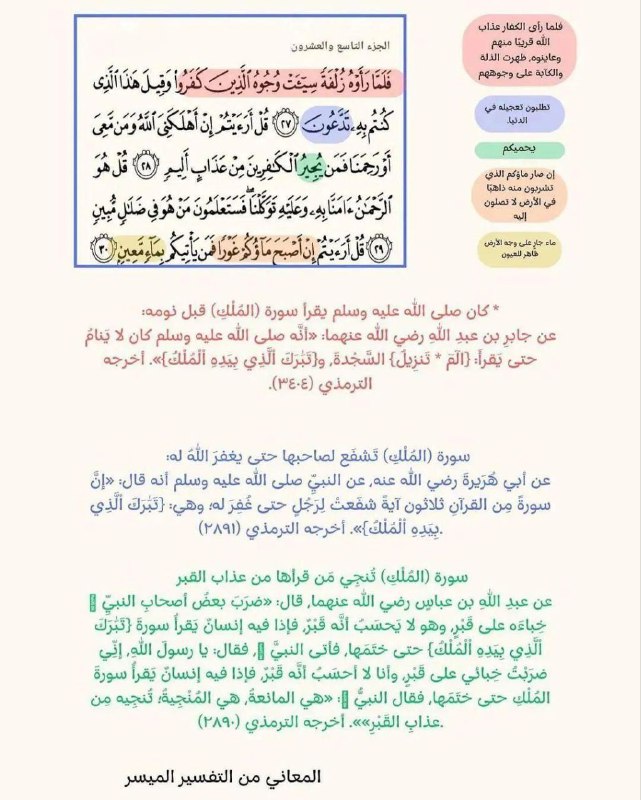 الجزء التاسع والعشرون
فَلَمَّا رَأَوْهُ زُلْفَةً سِيٓـَٔتْ وُجُوهُ ٱلَّذِينَ كَفَرُوا۟ وَقِيلَ هَٰذَا ٱلَّذِى
كُنتُم بِهِۦ تَدَّعُونَ ﴿٢٧﴾ قُلْ أَرَءَيْتُمْ إِنْ أَهْلَكَنِىَ ٱللَّهُ وَمَن مَّعِىَ
أَوْ رَحِمَنَا فَمَن يُجِيرُ ٱلْكَٰفِرِينَ مِنْ عَذَابٍ أَلِيمٍ ﴿٢٨﴾ قُلْ هُوَ
ٱلرَّحْمَٰنُ ءَامَنَّا بِهِۦ وَعَلَيْهِ تَوَكَّلْنَا ۖ فَسَتَعْلَمُونَ مَنْ هُوَ فِى ضَلَٰلٍ مُّبِينٍ
﴿٢٩﴾ قُلْ أَرَءَيْتُمْ إِنْ أَصْبَحَ مَآؤُكُمْ غَوْرًا فَمَن يَأْتِيكُم بِمَآءٍ مَّعِينٍۭ ﴿٣٠﴾
فلما رأى الكفار عذاب
الله قريبًا منهم
وعاينوه، ظهرت الذلة
والكآبة على وجوههم
تطلبون تعجيله في
الدنيا.
يحميكم
إن صار ماؤكم الذي
تشربون منه ذاهبًا
في الأرض لا تصلون
إليه
ماء جارٍ على وجه الأرض
ظاهر للعيون
* كان صلى الله عليه وسلم يقرأ سورة (المُلْكِ) قبل نومه:
عن جابرِ بن عبدِ اللهِ رضي الله عنهما: «أنَّه صلى الله عليه وسلم كان لا يَنامُ
حتى يَقرأَ: {الٓمٓ * تَنزِيلُ} السَّجْدةَ, و{تَبَٰرَكَ ٱلَّذِي بِيَدِهِ ٱلْمُلْكُ}». أخرجه
الترمذي (٣٤٠٤).
سورة (المُلْكِ) تَشفَع لصاحبها حتى يغفرَ اللهُ له:
عن أبي هُرَيرةَ رضي الله عنه, عن النبيِّ صلى الله عليه وسلم أنه قال: «إنَّ
سورةً مِن القرآنِ ثلاثون آيةً شفَعتْ لِرَجُلٍ حتى غُفِرَ له؛ وهي: {تَبَٰرَكَ ٱلَّذِي
بِيَدِهِ ٱلْمُلْكُ}». أخرجه الترمذي (٢٨٩١).
سورة (المُلْكِ) تُنجِي مَن قرأها من عذاب القبر
عن عبدِ اللهِ بن عباسٍ رضي الله عنهما, قال: «ضرَبَ بعضُ أصحابِ النبيِّ
خِباءَه على قَبْرٍ, وهو لا يَحسَبُ أنَّه قَبْرٌ, فإذا فيه إنسانٌ يَقرأُ سورةَ {تَبَٰرَكَ
ٱلَّذِي بِيَدِهِ ٱلْمُلْكُ} حتى ختَمَها, فأتى النبيَّ , فقال: يا رسولَ اللهِ, إنِّي
ضرَبْتُ خِبائي على قَبْرٍ, وأنا لا أحسَبُ أنَّه قَبْرٌ, فإذا فيه إنسانٌ يَقرأُ سورةَ
المُلْكِ حتى ختَمَها, فقال النبيُّ : «هي المانعةُ, هي المُنْجِيةُ؛ تُنجِيه مِن
عذابِ القَبْرِ»». أخرجه الترمذي (٢٨٩٠).
المعاني من التفسير الميسر